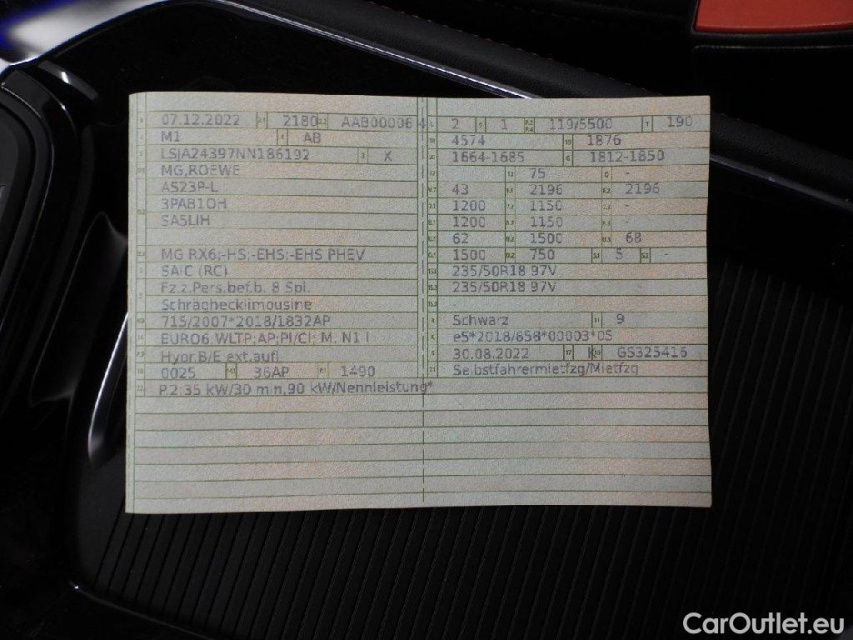 07.12.2022 2180 AAB0000E 4
M1 AB
LSJA24397NN186192 X
MG,ROEWE
AS23P-L
3PA81OH
SA5LIH
MG RX6;-HS;-EHS;-EHS PHEV
SAIC (RC)
Fz.z.Pers.bef.b. 8 Spl.
Schräghecklimousine
715/2007*2018/1832AP
EURO6;WLTP;AP;PI/CI; M, N1 I
Hybr.B/E ext.aufl
0025 36AP 1490
P.2:35 kW/30 min,90 kW/Nennleistung*
2 1 119/5500 190
4574 1876
1664-1685 1812-1850
- 75 -
43 2196 2196
1200 1150 -
1200 1150 -
62 1500 68
1500 750 5 -
235/50R18 97V
235/50R18 97V
Schwarz 9
e5*2018/858*00003*05
30.08.2022 K GS325416
Selbstfahrermietfzg/Mietfzg
CarOutlet.eu